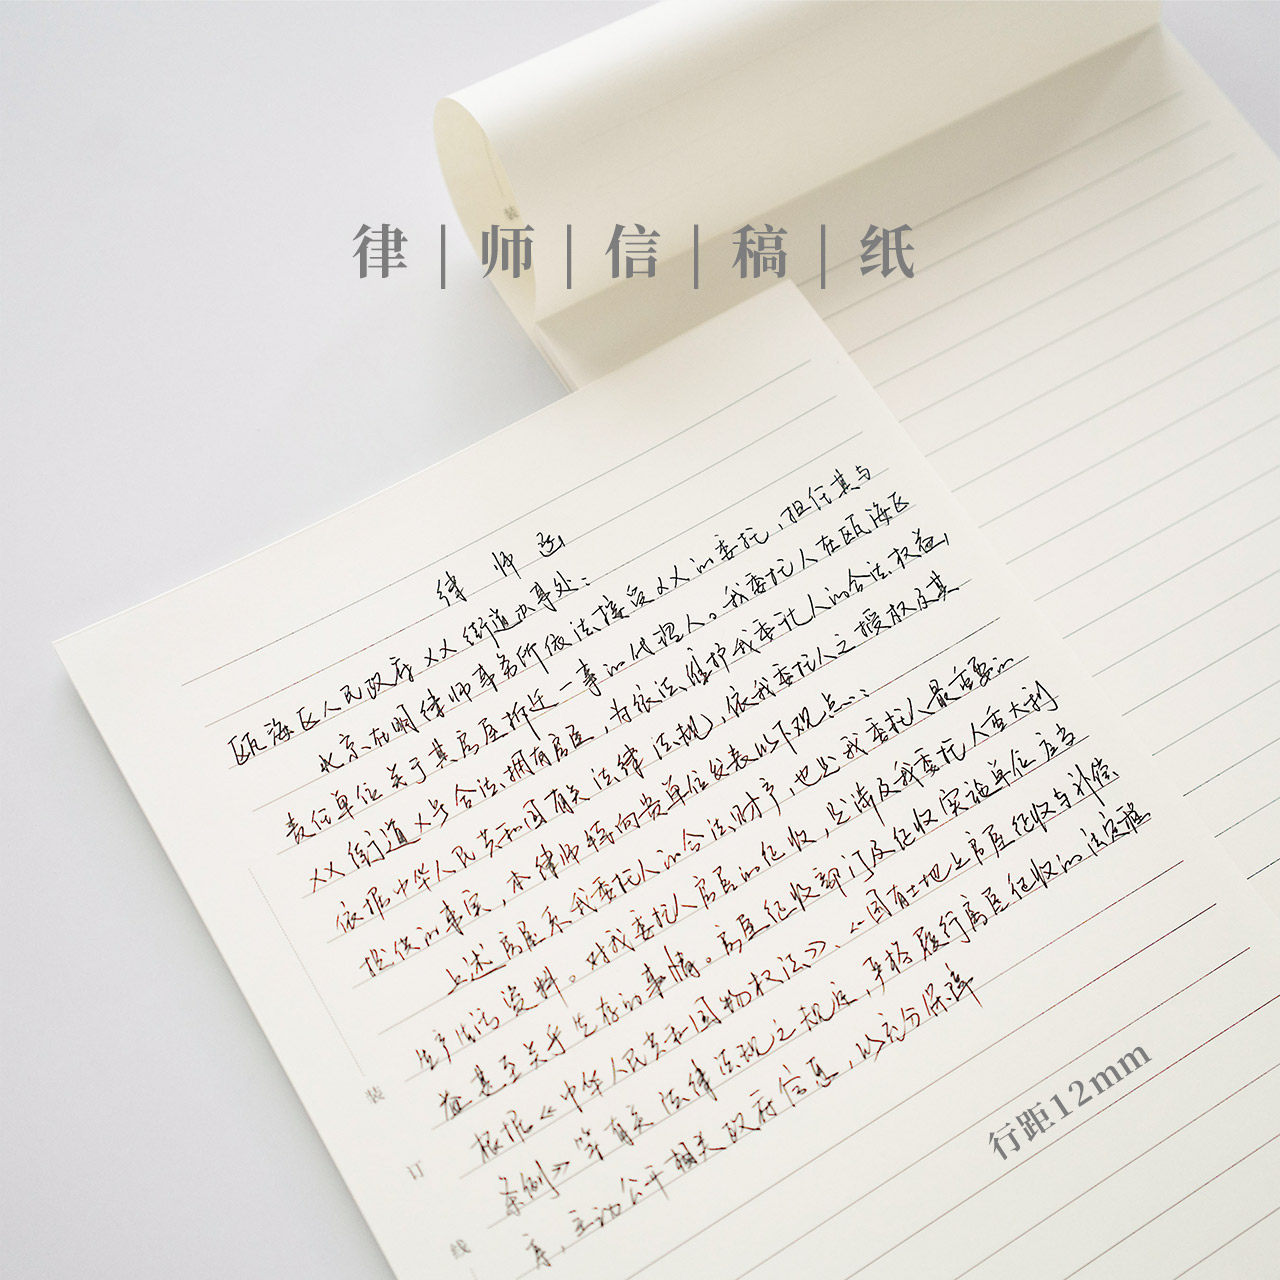 装
律｜师｜信｜稿｜纸
律师函
瓯海区人民政府XX街道办事处：
北京在明律师事务所依法接受XX的委托，担任其与
责任单位关于其房屋拆迁一事的代理人。我委托人在瓯海区
XX街道X号合法拥有房屋，为依法维护我委托人的合法权益，
依据中华人民共和国有关法律法规，依我委托人之授权及其
提供的事实，本律师特向贵单位发表以下观点：
上述房屋系我委托人的合法财产，也是我委托人最重要的
生产生活资料。对我委托人房屋的征收，是涉及我委托人重大利
益甚至关乎生存的事情。房屋征收部门及征收实施单位应当
根据《中华人民共和国物权法》、《国有土地上房屋征收与补偿
条例》等有关法律法规之规定，严格履行房屋征收的法定程
序，主动公开相关政府信息，以充分保障
装
订
线
行距12mm